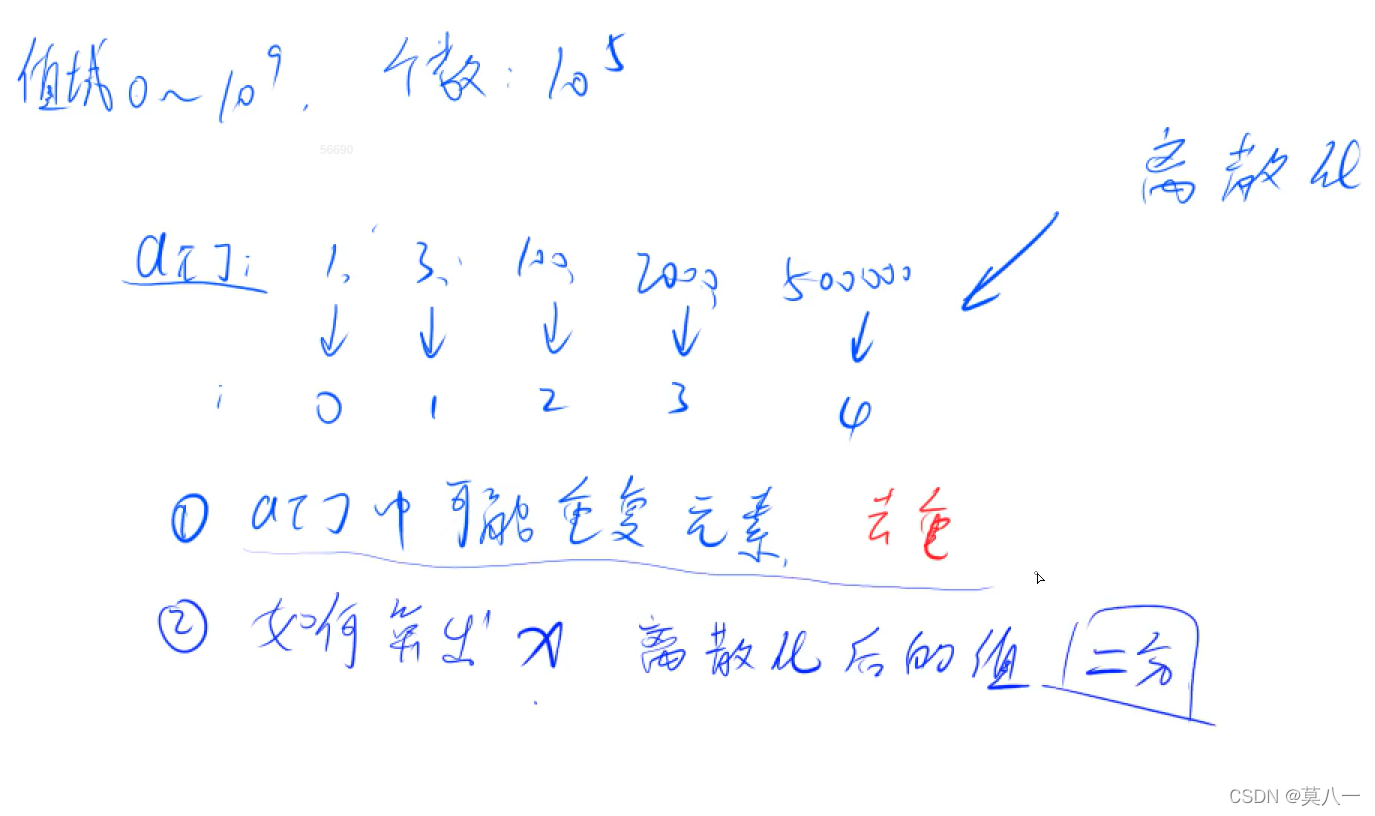 值域0~10^9. 个数:10^5
56690
离散化
a[]: 1, 3, 100, 2000, 500000
↓ ↓ ↓ ↓ ↓
i 0 1 2 3 4
① a[]中可能重复元素. 去重
② 如何算出x 离散化后的值 二分
CSDN @莫八一